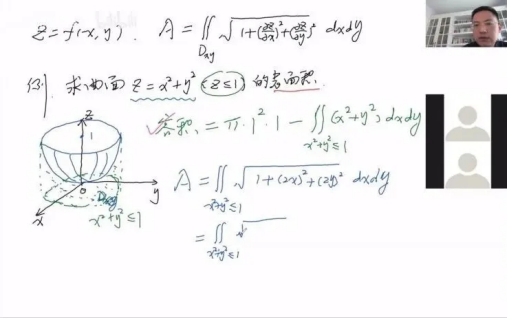 z=f(x,y). A=∬_{D_{xy}} √(1+(∂z/∂x)²+(∂z/∂y)²) dxdy
例. 求曲面 z=x²+y² (z≤1) 的表面积.
容积 = π·1²·1 − ∬_{x²+y²≤1} (x²+y²) dxdy
z
1
A=∬_{x²+y²≤1} √(1+(2x)²+(2y)²) dxdy
0
y
D_{xy}
x
x²+y²≤1
=∬_{x²+y²≤1} √